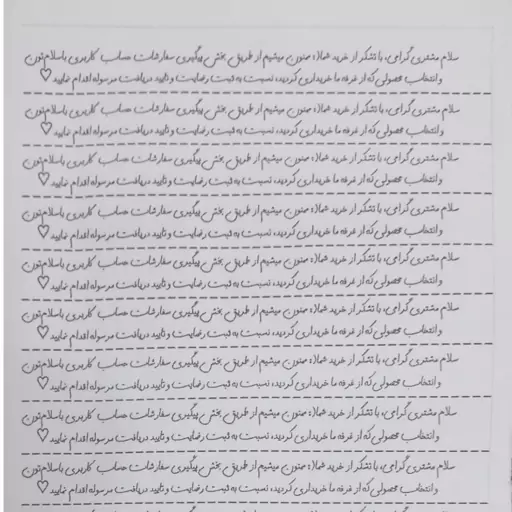 سلام مشتری گرامی، با تشکر از خرید شما؛ ممنون میشیم از طریق بخش پیگیری سفارشات حساب کاربری باسلام‌تون
و انتخاب محصولی که از غرفه ما خریداری کردید، نسبت به ثبت رضایت و تایید دریافت مرسوله اقدام نمایید ♡
سلام مشتری گرامی، با تشکر از خرید شما؛ ممنون میشیم از طریق بخش پیگیری سفارشات حساب کاربری باسلام‌تون
و انتخاب محصولی که از غرفه ما خریداری کردید، نسبت به ثبت رضایت و تایید دریافت مرسوله اقدام نمایید ♡
سلام مشتری گرامی، با تشکر از خرید شما؛ ممنون میشیم از طریق بخش پیگیری سفارشات حساب کاربری باسلام‌تون
و انتخاب محصولی که از غرفه ما خریداری کردید، نسبت به ثبت رضایت و تایید دریافت مرسوله اقدام نمایید ♡
سلام مشتری گرامی، با تشکر از خرید شما؛ ممنون میشیم از طریق بخش پیگیری سفارشات حساب کاربری باسلام‌تون
و انتخاب محصولی که از غرفه ما خریداری کردید، نسبت به ثبت رضایت و تایید دریافت مرسوله اقدام نمایید ♡
سلام مشتری گرامی، با تشکر از خرید شما؛ ممنون میشیم از طریق بخش پیگیری سفارشات حساب کاربری باسلام‌تون
و انتخاب محصولی که از غرفه ما خریداری کردید، نسبت به ثبت رضایت و تایید دریافت مرسوله اقدام نمایید ♡
سلام مشتری گرامی، با تشکر از خرید شما؛ ممنون میشیم از طریق بخش پیگیری سفارشات حساب کاربری باسلام‌تون
و انتخاب محصولی که از غرفه ما خریداری کردید، نسبت به ثبت رضایت و تایید دریافت مرسوله اقدام نمایید ♡
سلام مشتری گرامی، با تشکر از خرید شما؛ ممنون میشیم از طریق بخش پیگیری سفارشات حساب کاربری باسلام‌تون
و انتخاب محصولی که از غرفه ما خریداری کردید، نسبت به ثبت رضایت و تایید دریافت مرسوله اقدام نمایید ♡
سلام مشتری گرامی، با تشکر از خرید شما؛ ممنون میشیم از طریق بخش پیگیری سفارشات حساب کاربری باسلام‌تون
و انتخاب محصولی که از غرفه ما خریداری کردید، نسبت به ثبت رضایت و تایید دریافت مرسوله اقدام نمایید ♡
سلام مشتری گرامی، با تشکر از خرید شما؛ ممنون میشیم از طریق بخش پیگیری سفارشات حساب کاربری باسلام‌تون
و انتخاب محصولی که از غرفه ما خریداری کردید، نسبت به ثبت رضایت و تایید دریافت مرسوله اقدام نمایید ♡